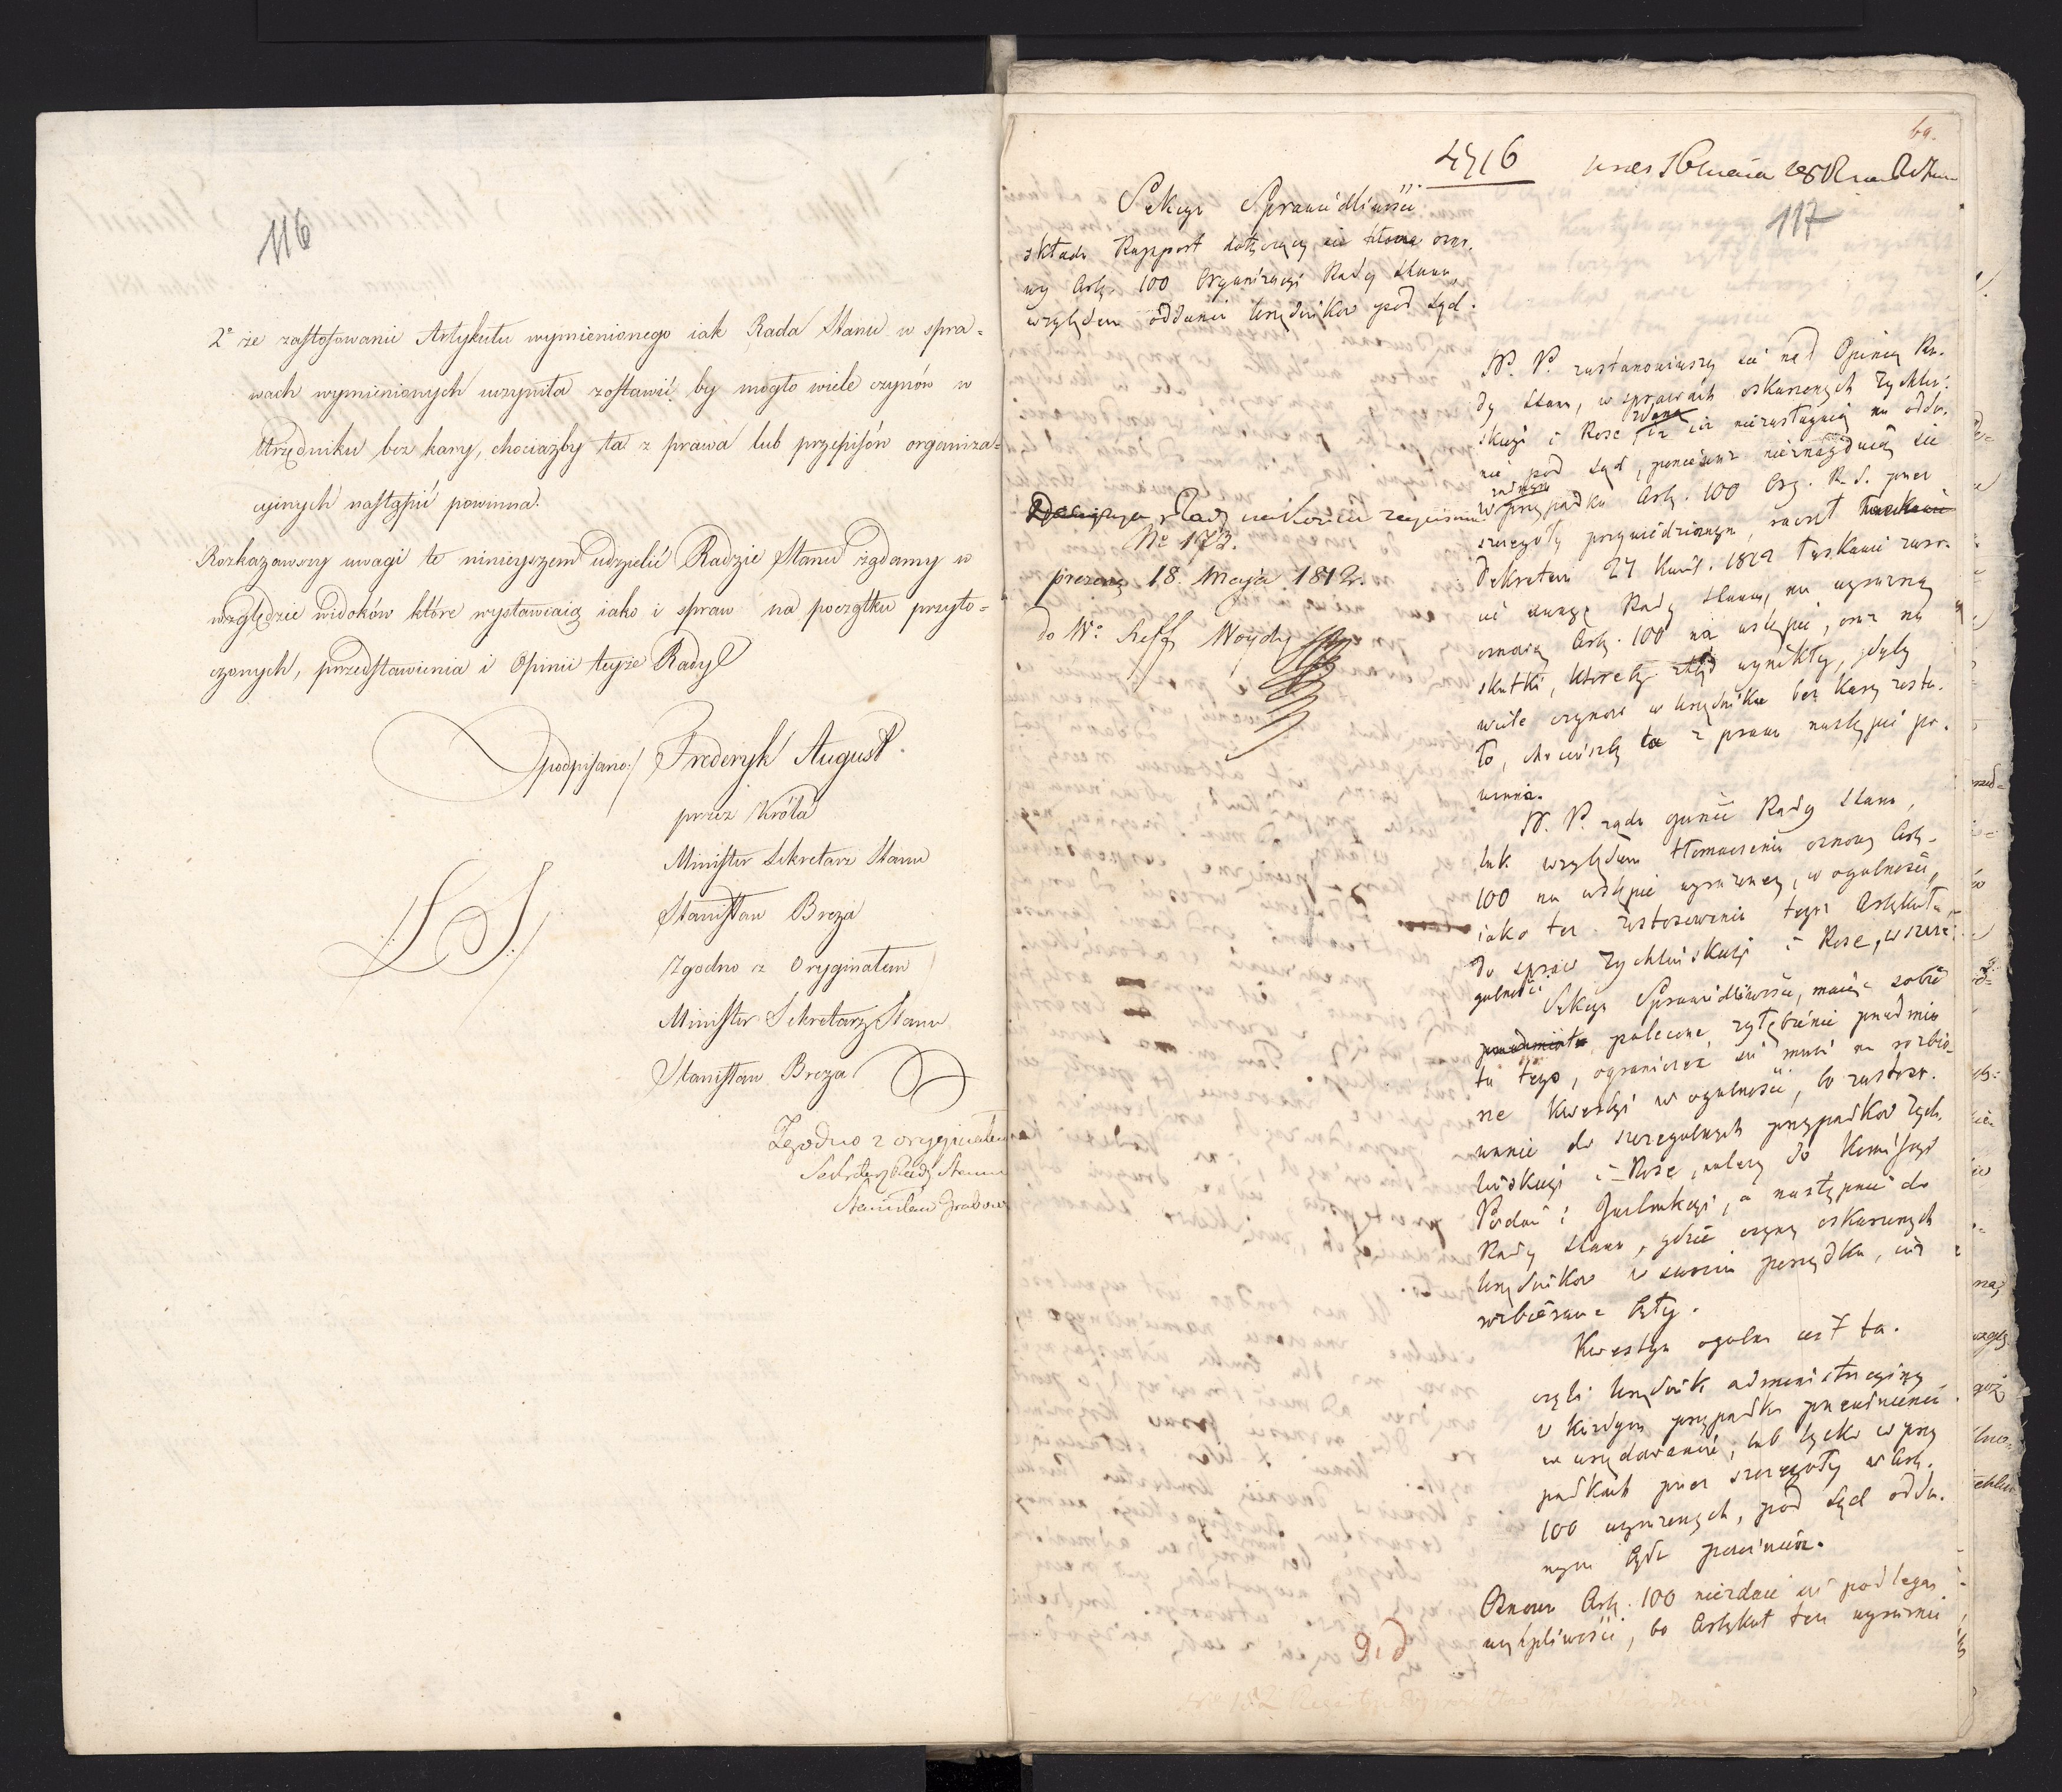 116
2º że zastosowanie Artykułu wymienionego iak Rada Stanu w spra=
wach wymienionych uczyniła zostawić by mogło wiele czynów w
Urzędniku bez kary, chociażby ta z prawa lub przepisów organiza=
cyinych nastąpić powinna.
Rozkazawszy uwagi te ninieyszem udzielić Radzie Stanu żądamy w
względzie widoków które wystawiaią iako i spraw na początku przyto=
czonych, przedstawienia i Opinii teyże Rady
/podpisano:/ Frederyk August.
przez Króla
Minister Sekretarz Stanu
Stanisław Breza
/:L S:/
Zgodno z Oryginałem
Minister Sekretarz Stanu
Stanisław Breza
Zgodno z oryginałem
Sekretarz Rady Stanu
Stanisław
69.
4716
117
Sekcya Sprawiedliwości
składa Rapport dotyczący się
wy Art. 100 Organizacyi Rady Stanu,
względem oddania Urzędników pod Sąd.
Rady
Nº 173.
18. Maja 1812.
do Wº Reff Woydy
N. P. zastanowiwszy się nad Opinią Ra-
dy Stanu, w sprawach oskarżonych Zychliń-
skiego i Rose, iż nie zasługuią na odda-
nie pod Sąd, ponieważ nieznayduią się
w przypadku Art. 100 Org. R. S. przez
szczegóły przewidzianym, raczył
Dekretem 27 Kwiet. 1812 łaskawie zwró-
cić uwagę Rady Stanu, na wyraźną
osnowę Art. 100 na wstępie, oraz na
skutki, któreby ztąd wynikły, gdyby
wiele czynów w Urzędniku bez kary zosta-
ło, chociażby ta z prawa nastąpić po-
winna.
N. P. żąda opinii Rady Stanu,
tak względem tłomaczenia osnowy Art.
100 na wstępie wyrażoney, w ogulności,
iako też zastosowania tegoż Artykułu,
do spraw Zychlińskiego i Rose, w szcze-
gulności.
Sekcya Sprawiedliwości, maiąc sobie
polecone zgłębienie przedmio
tu tego, ograniczać się musi na rozbio-
rze kwestyi w ogulności, bo zastoso-
wanie do szczegulnych przypadków Zych-
lińskiego i Rose, należy do Komissyi
Podań i Instrukcyi, a następnie do
Rady Stanu, gdzie czyny oskarżonych
Urzędników w swoim porządku, iuż
rozbierane były.
Kwestya ogulna iest ta.
czyli Urzędnik administracyiny
w każdym przypadku przewinienia
w urzędowaniu, lub tylko w przy
padkach przez szczegóły w Art.
100 wyrażonych, pod Sąd odda-
nym bydź powinien.
Osnowa Art. 100 niezdaie się podlegać
wątpliwości, bo Artykuł ten wyraźnie